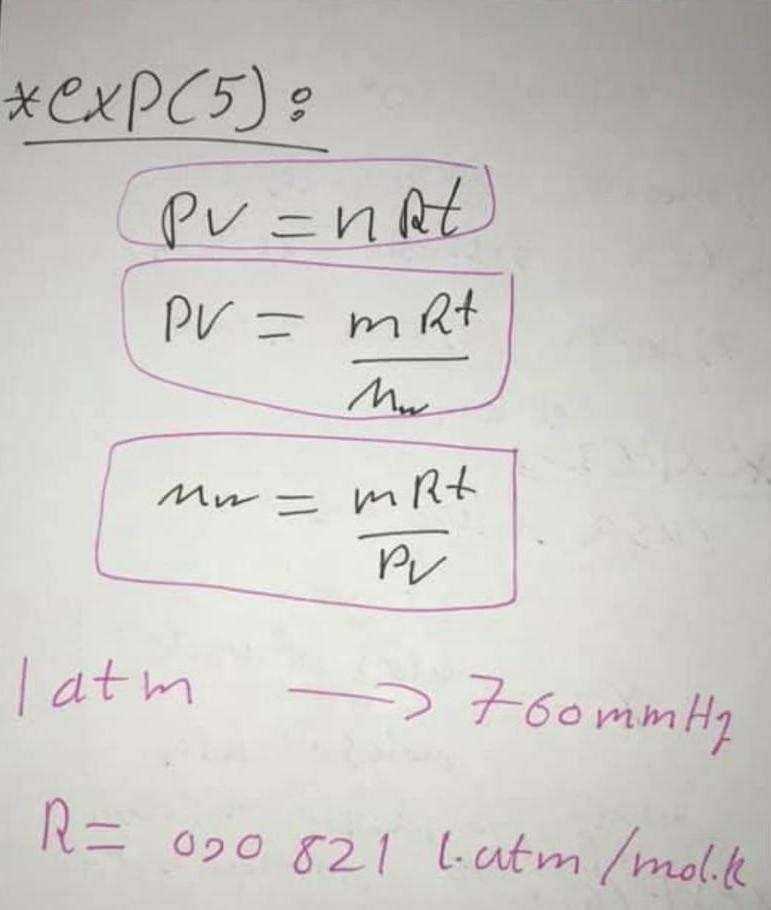 *exp(5):
PV = nRt
PV = mRt / Mw
Mw = mRt / PV
1 atm → 760 mmHg
R = 0,0821 L.atm/mol.k